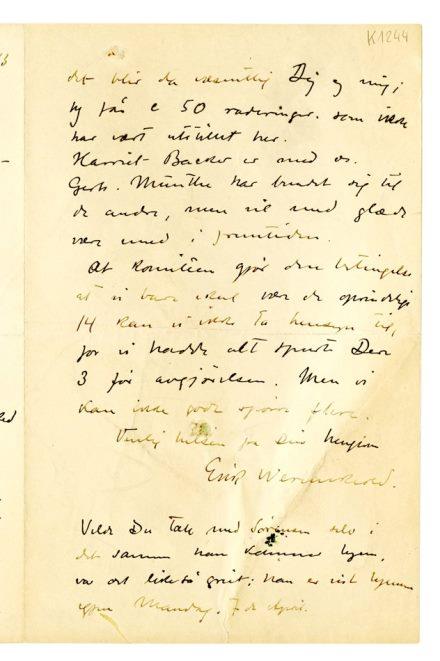 K1244
det blir da væsentlig Dig og mig;
jeg får c 50 raderinger. som ikke
har vært utstillet her.
Harriet Backer er med os.
Gerh. Munthe har bundet sig til
de andre, men vil med glæde
være med i fremtiden.
At komiteen gjør den betingelse
at vi bare skal være de oprindelige
14 kan vi ikke ta hensyn til,
for vi hadde alt spurt Dere
3 før avgjørelsen. Men vi
kan ikke godt spørre flere.
Venlig hilsen fra Din hengivne
Erik Werenskiold.
Vilde Du tale med Sørensen selv i
det samme han kommer hjem,
var det like så greit; han er vist hjemme
igjen Mandag, 7de April.